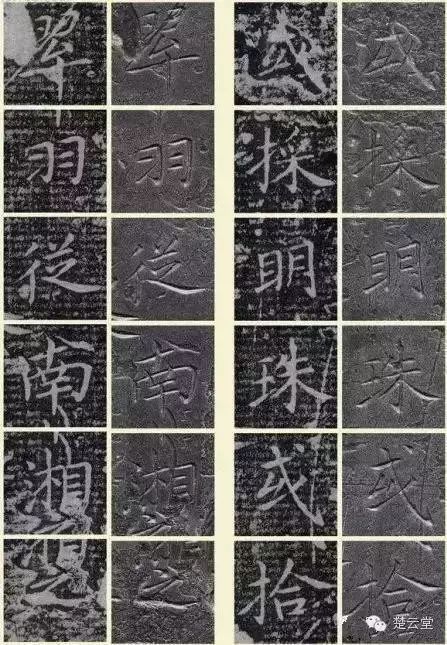 或採明珠或拾
或採明珠或拾
翠羽從南湘之
翠羽從南湘之
楚云堂